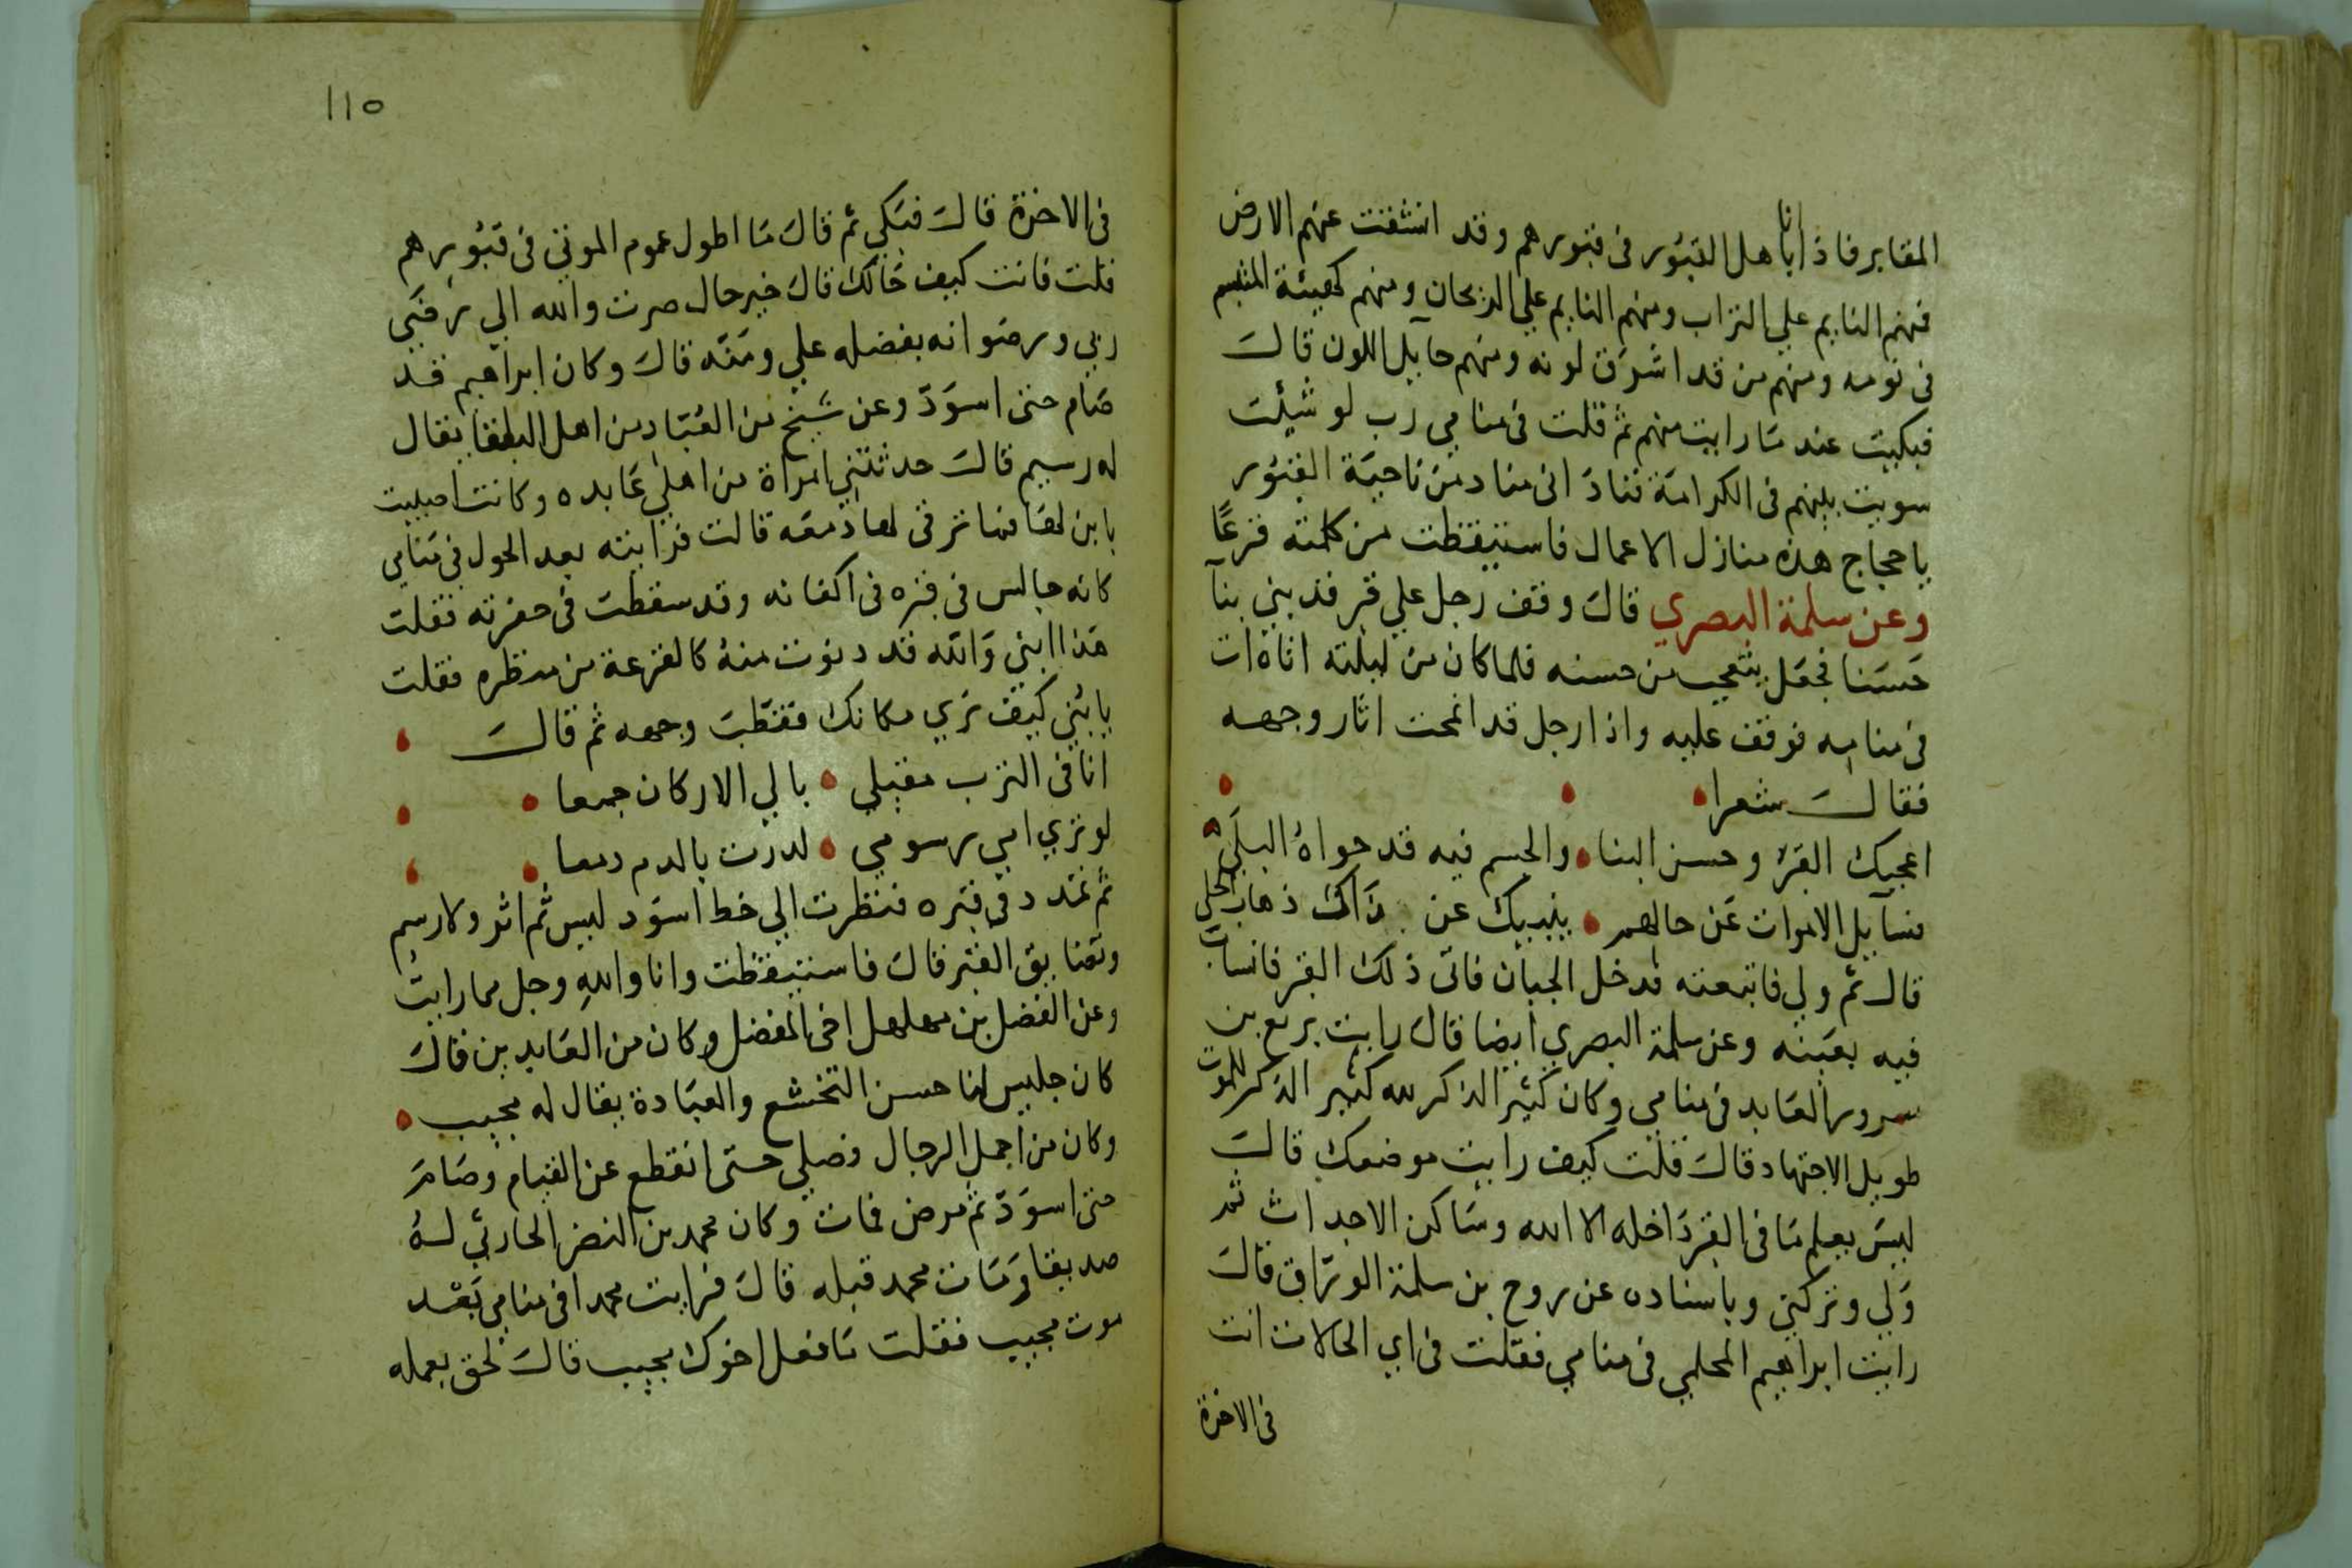 المقابر فاذا انا باهل القبور فى قبورهم وقد انشقت عنهم الارض
فمنهم النايم على التراب ومنهم النايم على الريحان ومنهم كهيئة المتبسم
فى نومه ومنهم من قد اشرق لونه ومنهم حايل اللون قال
فبكيت عند ما رايت منهم ثم قلت فى منامى رب لو شيئت
سويت بينهم فى الكرامة فناد انى مناد من ناحية القبور
يا حجاج هذه منازل الاعمال فاستيقظت من كلمته فزعا
وعن سلمة البصري قال وقف رجل علي قبر قد بني بنآ
حسنا فجعل يتعجب من حسنه فلما كان من ليلته اتاه ات
فى منامه فوقف عليه واذا رجل قد انمحت اثار وجهه
فقال شعرا
اعجبك القبر وحسن البنا والجسم فيه قد حواه البلى
فسآيل الاموات عن حالهم ينبيك عن ذاك ذهاب الحلي
قال ثم ولي فاتبعته فدخل الجبان فاتى ذلك القبر فانساب
فيه بعينه وعن سلمة البصري ايضا قال رايت بزيع بن
سرور العابد فى منامى وكان كثير الذكر لله كثير الذكر للموت
طويل الاجتهاد قال قلت كيف رايت موضعك قال
ليس يعلم ما فى القبر داخله الا الله وساكن الاجداث ثم
ولي وتركني وباسناده عن روح بن سلمة الوراق قال
رايت ابراهيم المحلمي فى منامي فقلت فى اي الحالات انت
فى الاخرة
110
فى الاخرة قال فبكي ثم قال ما اطول غموم الموتى فى قبورهم
قلت فانت كيف حالك قال خير حال صرت والله الي رفقي
ربي ورضوانه بفضله علي ومنه قال وكان ابراهيم قد
صام حتى اسود وعن شيخ من العباد من اهل البلقا يقال
له رسيم قال حدثتني امراة من اهلي عابده وكانت اصيبت
بابن لها فما ترقى لها دمعه قالت فرايته بعد الحول فى منامي
كانه جالس فى قبره فى اكفانه وقد سقطت فى حفرته فقلت
هذا ابني والله قد دنوت منه كالفزعة من منظره فقلت
يا بني كيف تري مكانك فقطب وجهه ثم قال
انا فى الترب مقيلي بالي الاركان جمعا
لو تري امي رسومي لدرت بالدم دمعا
ثم تمدد فى قبره فنظرت الي خط اسود ليس ثم اثر ولا رسم
وتضايق القبر قال فاستيقظت وانا والله وجل مما رايت
وعن الفضل بن مهلهل اخى المفضل وكان من العابدين قال
كان جليس لنا حسن التخشع والعبادة يقال له مجيب
وكان من اجمل الرجال فصلي حتى انقطع عن القيام وصام
حتى اسود ثم مرض فمات وكان محمد بن النضر الحارثي له
صديقا ومات محمد قبله قال فرايت محمدا فى منامى بعد
موت مجيب فقلت ما فعل اخوك مجيب قال لحق بعمله